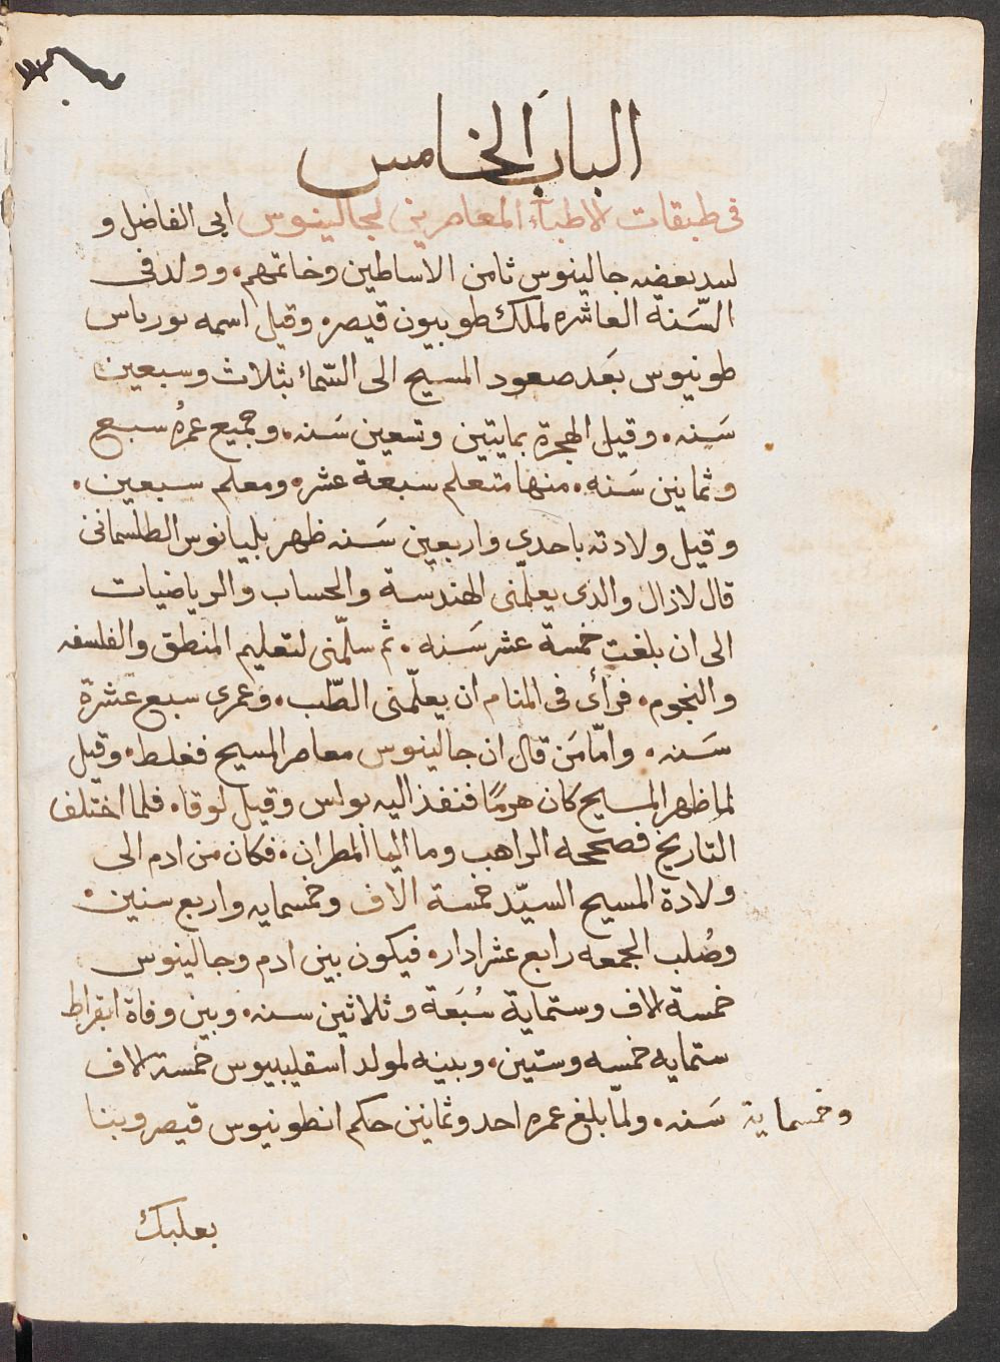 الباب الخامس
فى طبقات الاطبآء المعاصرين لجالينوس ابى الفاضل و
جالينوس ثامن الاساطين وخاتمهم، وولد فى
السّنة العاشره لملك طوبيون قيصره وقيل اسمه
طونيوس بعَد صعود المسيح الى السّماء بثلاث وسبعين
سَنه. وقيل الهجرة بمايتين وتسعين سَنه، وجميع عمرُه سبع
وثمانين سَنه. منها متعلم سبعة عشره ومعلم سبعين.
وقيل ولادته باحدي واربعين سَنه ظهر بليانوس الطلسمانى
قال لازال والدى يعلّمنى الهندسة والحساب والرياضيات
الى ان بلغت خمسة عشر سَنه. ثم سلّمنى لتعليم المنطق والفلسفه
والنجوم، فرأى فى المنام ان يعلّمنى الطّب، وعمرى سبع عشرة
سَنه، وامّا مَن قال ان جالينوس معاصر المسيح فغلط، وقيل
لما ظهر المسيح كان هرمًا فنفذ اليه بولس وقيل لوقا، فلما اختلف
التاريخ فصححه الراهب وما اليا المطران، فكان من ادم الى
ولادة المسيح السيّد خمسة الاف وخمسمايه واربع سنين.
وصُلب الجمعه رابع عشر اداره فيكون بين ادم وجالينوس
خمسة الاف وستماية سُبَعة وثلاثين سنه، وبين وفاة ابقراط
ستمايه خمسه وستين، وبينه لمولد اسقليبيوس خمسة الاف
وخمسماية سَنه. ولمّا بلغ عمره احد وثمانين حكم انطونيوس قيصر وبنا
بعلبك